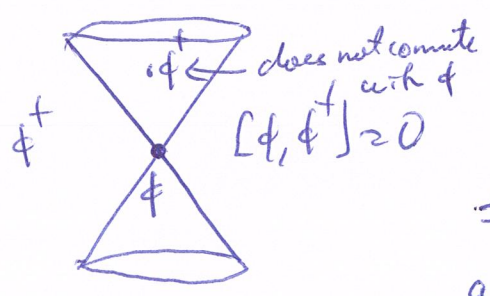 ·ϕ† ← does not commute
with ϕ
ϕ† [ϕ, ϕ†] = 0
ϕ